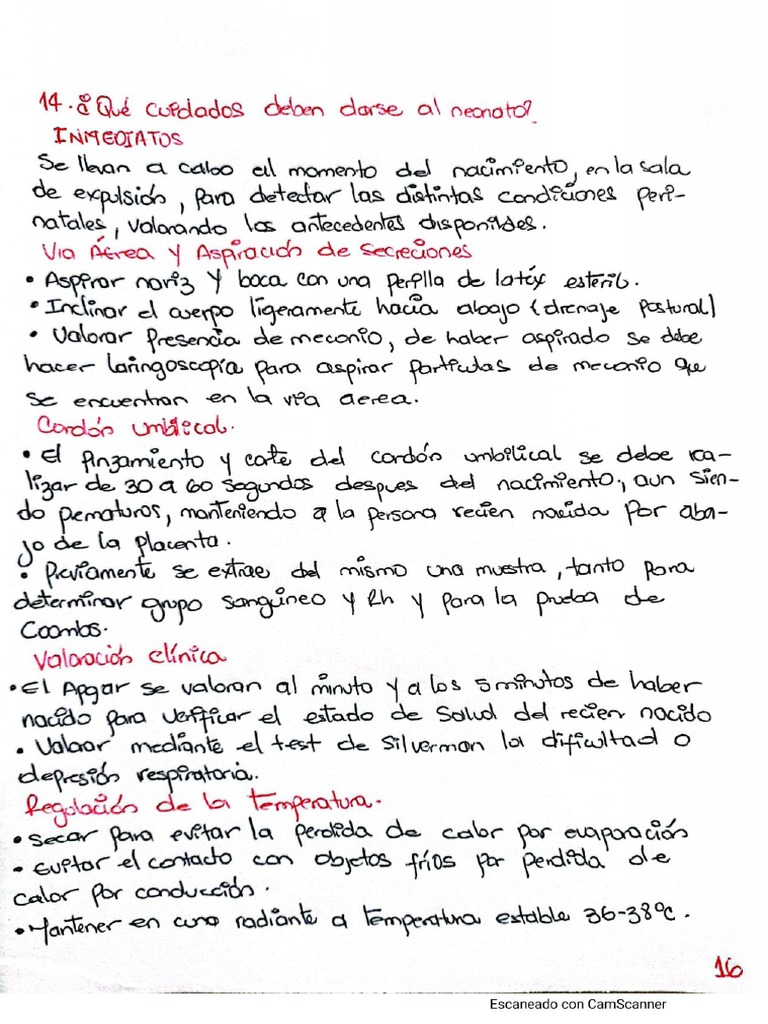 14. ¿Qué cuidados deben darse al neonato?
INMEDIATOS
Se llevan a cabo al momento del nacimiento, en la sala
de expulsión, para detectar las distintas condiciones peri-
natales, valorando los antecedentes disponibles.
Via Áerea y Aspiración de Secreciones
• Aspirar nariz y boca con una perilla de latéx esteril.
• Inclinar el cuerpo ligeramente hacia abajo (drenaje postural)
• Valorar Presencia de meconio, de haber aspirado se debe
hacer laringoscopía para aspirar partículas de meconio que
se encuentran en la via aerea.
Cordón umbilical.
• El Pinzamiento y corte del cordón umbilical se debe rea-
lizar de 30 a 60 segundos despues del nacimiento, aun sien-
do prematuros, manteniendo a la persona recien nacida por aba-
jo de la placenta.
• Previamente se extrae del mismo una muestra, tanto para
determinar grupo sanguineo y Rh y para la prueba de
Coombs.
Valoración clínica
• El Apgar se valoran al minuto y a los 5 minutos de haber
nacido para verificar el estado de Salud del recien nacido
• Valorar mediante el test de Silverman la dificultad o
depresión respiratoria.
Regulación de la temperatura.
• Secar para evitar la perdida de calor por evaporación
• Evitar el contacto con objetos fríos por perdida de
calor por conducción.
• Mantener en cuna radiante a temperatura estable 36-38°c.
16
Escaneado con CamScanner